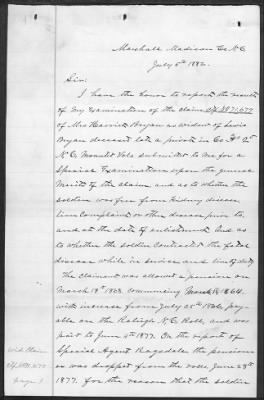 Marshall Madison Co N.C.
July 5th 1882.
Sir:
I have the honor to report the result
of my Examination of the claim
of Mrs Harriet Bryan as widow of Lewis
Bryan deceased late a private in Co F 2d
N.C. Mount'd Vols submitted to me for a
Special Examination upon the general
Merits of the claim and as to whether the
soldier was free from Kidney disease
Complaint or other disease prior to
and at the date of enlistment And as
to whether the soldier Contracted the fatal
disease while in service and line of duty
The Claimant was allowed a pension on
March 18th 1868. commencing 1864.
with increase from July 25th 1866, pay-
able on the Raleigh N.C. Roll, and was
paid to June 4th 1877. On the report of
Special Agent Ragsdale the pension-
er was dropped from the rolls, June 23d
1877. for the reason that the soldier
Wid. Claim
Page 1